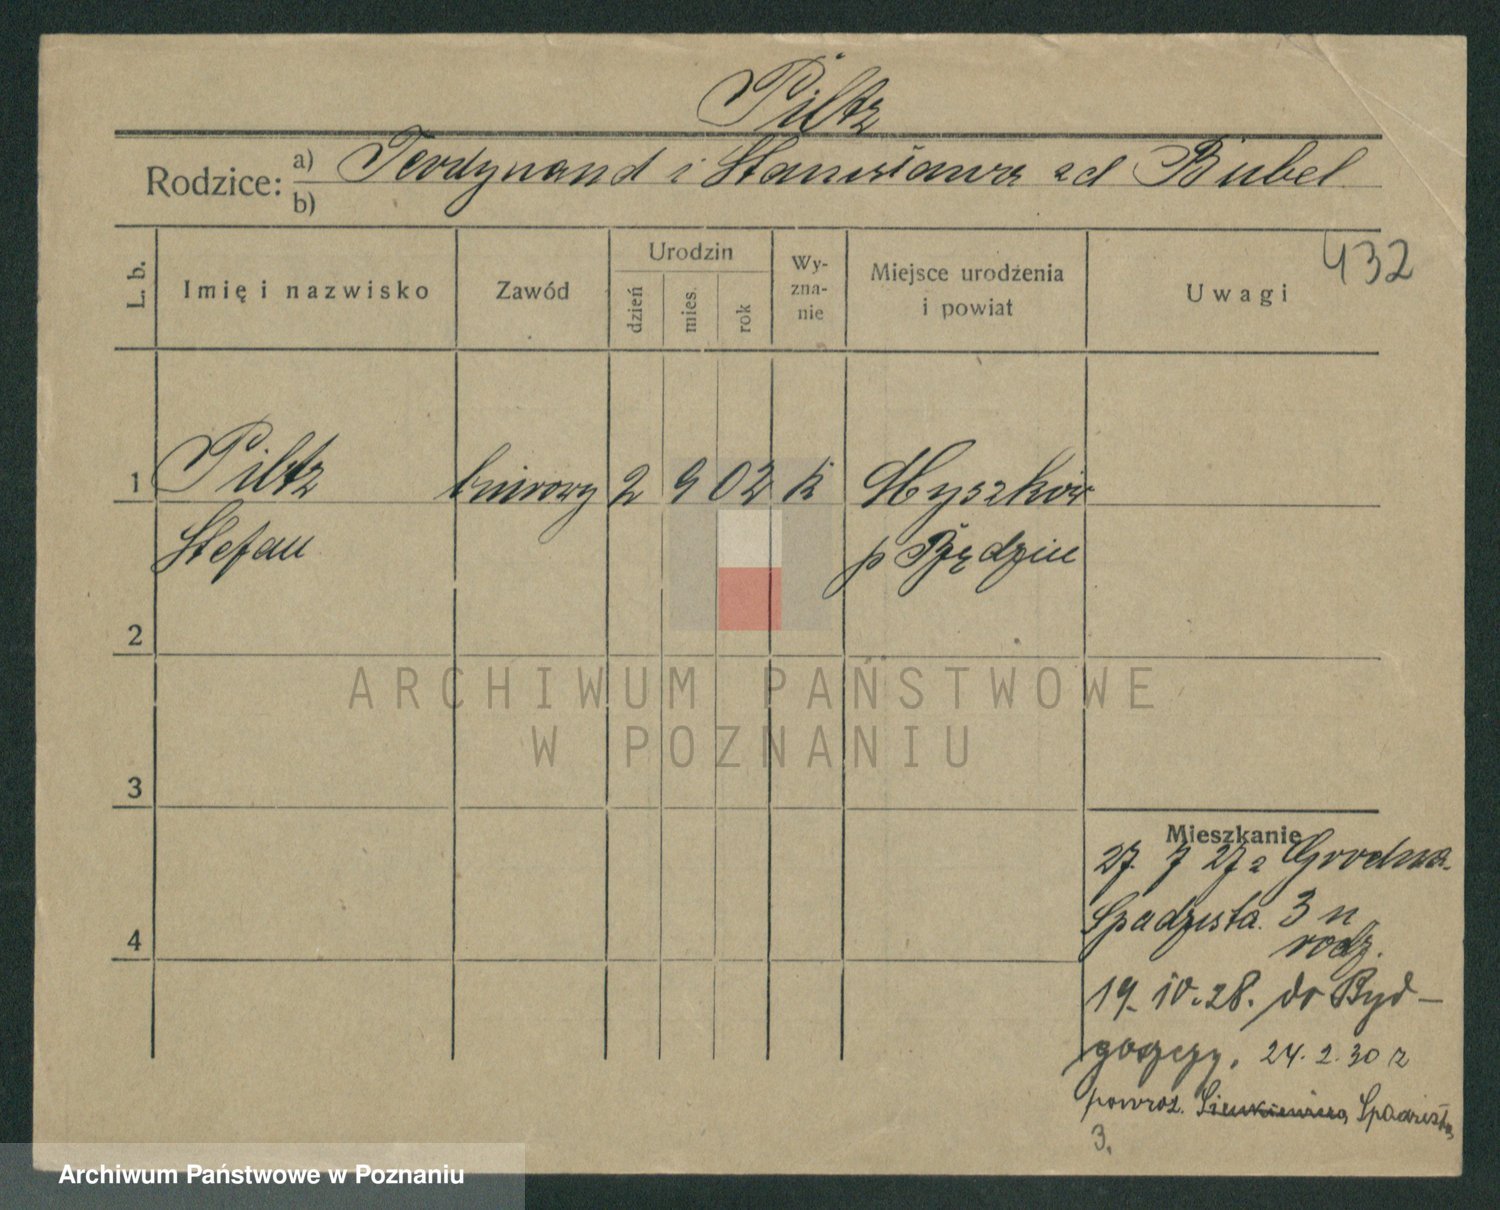 Piltz
Rodzice: a) Ferdynand i Stanisława zd Bubel
b)
L. b. Imię i nazwisko Zawód Urodzin dzień mies. rok Wy-zna-nie Miejsce urodzenia i powiat Uwagi 432
1 Piltz biurowy 2 9 02 k Myszków
Stefan p Będzin
2
ARCHIWUM PAŃSTWOWE
W POZNANIU
3
Mieszkanie
27. 7 27 z Grodna
Spadzista 3 u
rodz.
19. IV. 28. do Byd-
goszczy. 24. 2. 30 z
powroz. Sienkiewicza Spadzista
3.
4
Archiwum Państwowe w Poznaniu